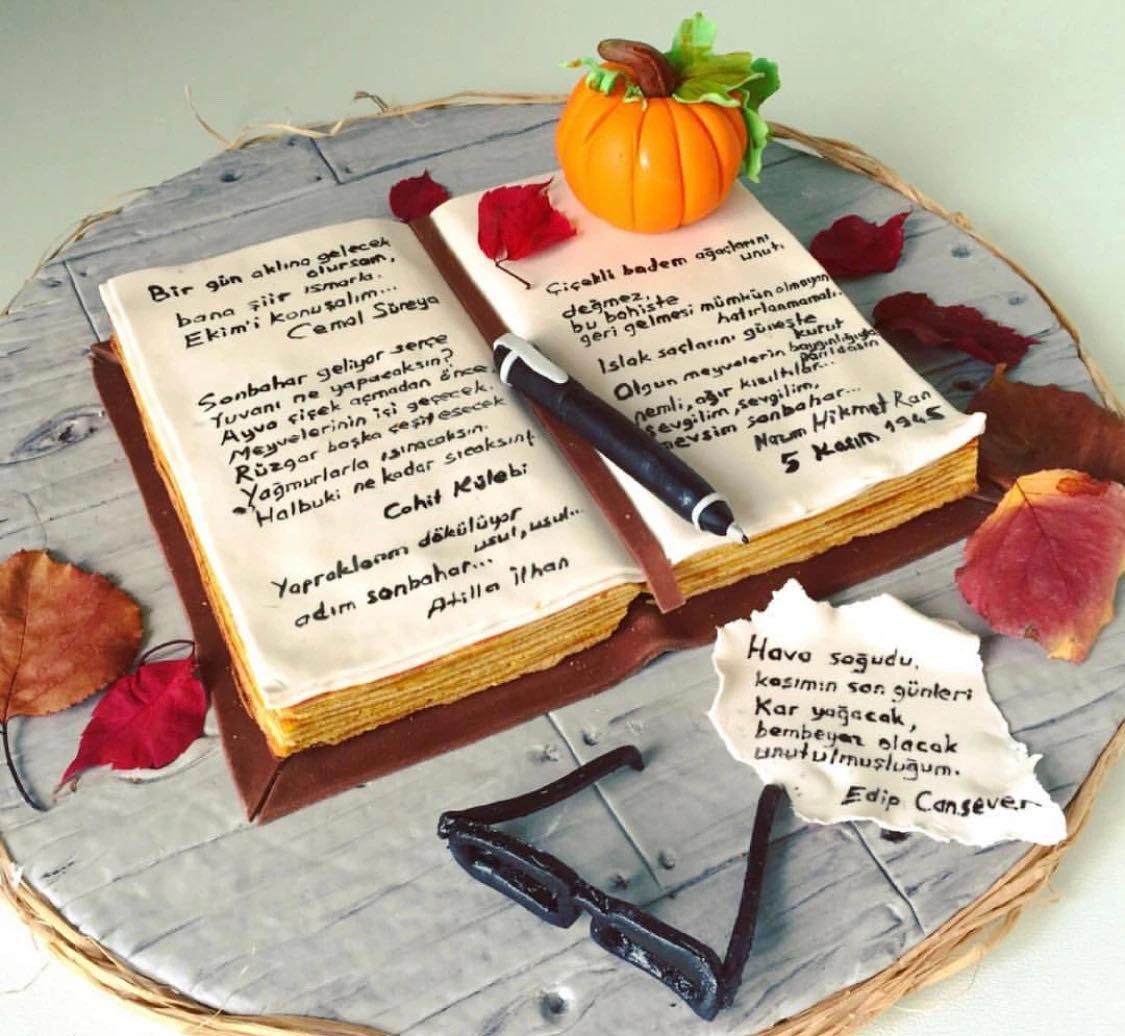 Bir gün aklına gelecek
olursam,
bana şiir ısmarla.
Ekim'i konuşalım...
Cemal Süreya
Sonbahar geliyor serçe
Yuvanı ne yapacaksın?
Ayva çiçek açmadan önce
Meyvelerinin işi geçecek.
Rüzgar başka çeşit esecek
Yağmurlarla ısınacaksın.
Halbuki ne kadar sıcaksın!
Cahit Külebi
Yapraklarım dökülüyor
usul, usul...
adım sonbahar...
Atilla ilhan
Çiçekli badem ağaçlarını
unut.
değmez,
bu bahiste
geri gelmesi mümkün olmayan
hatırlanmamalı..
Islak saçlarını güneşte
kurut
Olgun meyvelerin baygınlığıyla
parıldasın
nemli, ağır kızıltılar...
sevgilim, sevgilim,
mevsim sonbahar...
Nazım Hikmet Ran
5 Kasım 1945
Hava soğudu,
kasımın son günleri
Kar yağacak,
bembeyaz olacak
unutulmuşluğum.
Edip Cansever